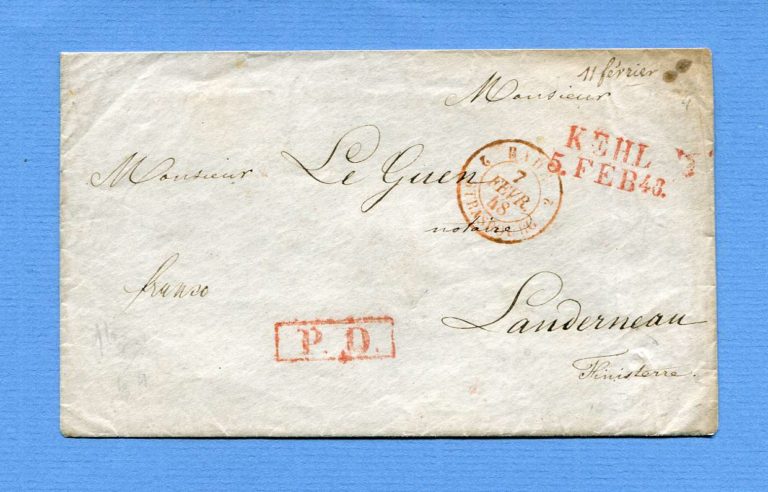 11 février
Monsieur
Monsieur Le Guen
notaire
franco
Landerneau
Finisterre.
KEHL
5. FEB 48.
2 BADE STRASBOURG 2
7
FEVR.
48
P. D.